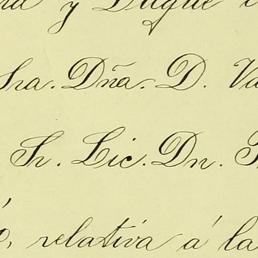 y Duque
Sra. Dña. D. Va
Sr. Lic. Dn.
ó, relativa á la